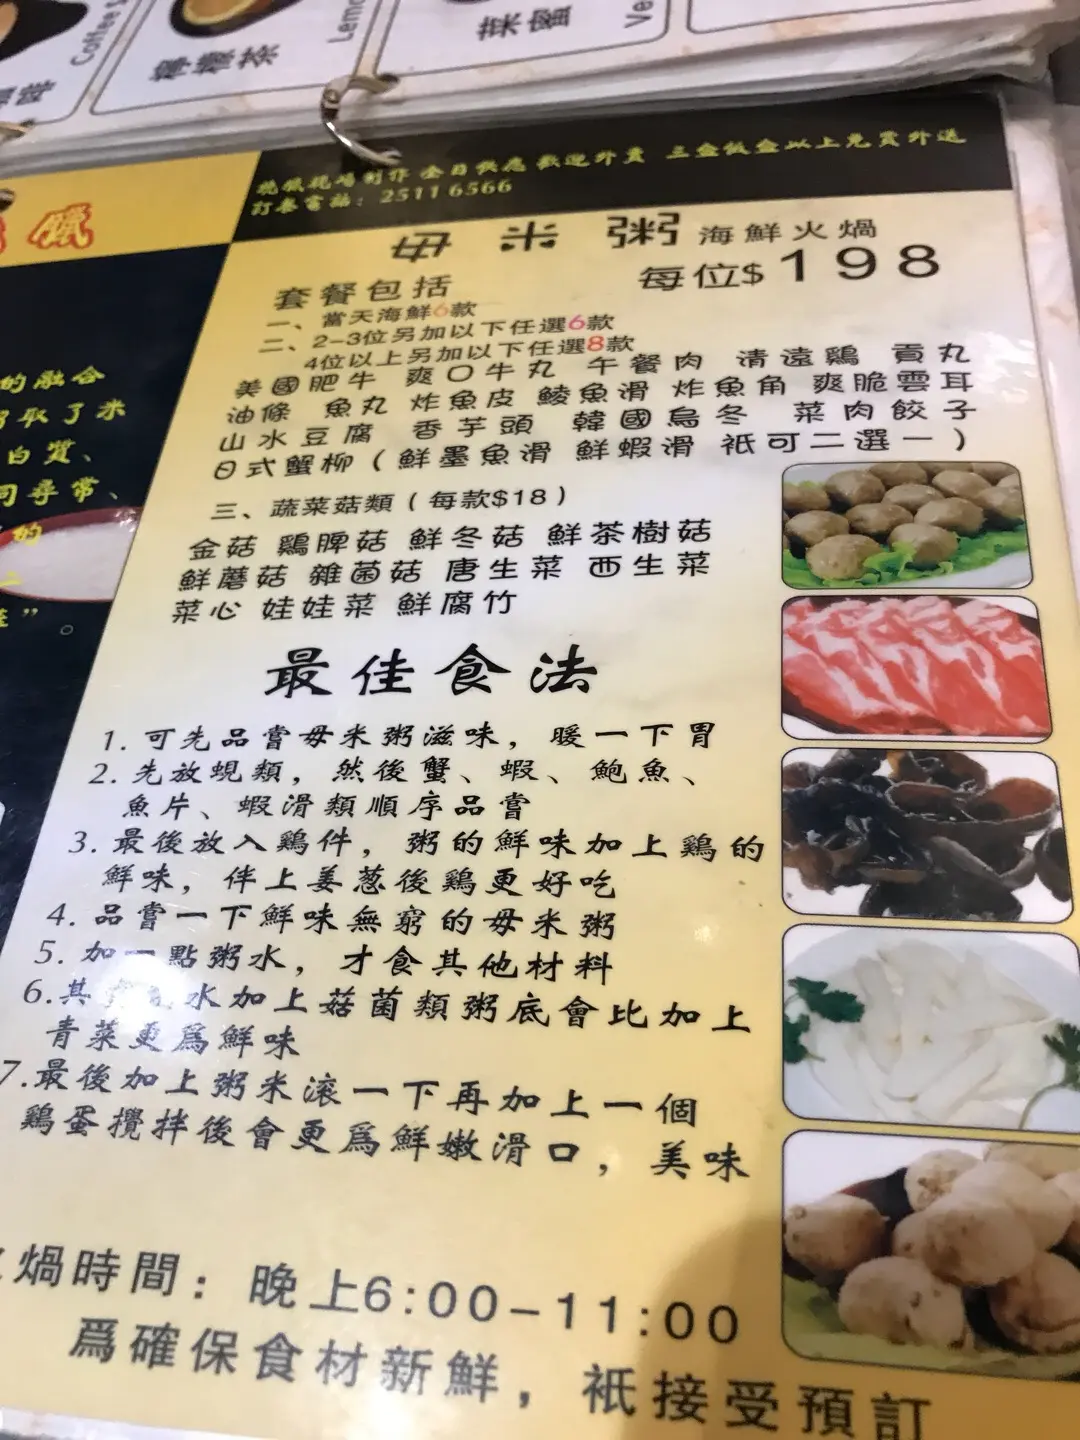 Coffee &
檸檬茶
Lemo
菜蜜
Ve
臘
現場制作 全日供應 歡迎外賣 三盒飯盒以上免費外送
訂餐電話：2511 6566
毋米粥 海鮮火煱
每位$198
套餐包括
一、當天海鮮6款
二、2-3位另加以下任選6款
4位以上另加以下任選8款
美國肥牛 爽口牛丸 午餐肉 清遠鷄 貢丸
油條 魚丸 炸魚皮 鯪魚滑 炸魚角 爽脆雲耳
山水豆腐 香芋頭 韓國烏冬 菜肉餃子
日式蟹柳（鮮墨魚滑 鮮蝦滑 衹可二選一）
三、蔬菜菇類（每款$18）
金菇 鷄脾菇 鮮冬菇 鮮茶樹菇
鮮蘑菇 雜菌菇 唐生菜 西生菜
菜心 娃娃菜 鮮腐竹
最佳食法
1. 可先品嘗毋米粥滋味，暖一下胃
2. 先放蜆類，然後蟹、蝦、鮑魚、
魚片、蝦滑類順序品嘗
3. 最後放入鷄件，粥的鮮味加上鷄的
鮮味，伴上姜葱後鷄更好吃
4. 品嘗一下鮮味無窮的毋米粥
5. 加一點粥水，才食其他材料
6.其 水加上菇菌類粥底會比加上
青菜更爲鮮味
7.最後加上粥米滚一下再加上一個
鷄蛋攪拌後會更爲鮮嫩滑口，美味
煱時間：晚上6:00-11:00
爲確保食材新鮮，衹接受預訂
的融合
取了米
白質、
同尋常、
的
”。